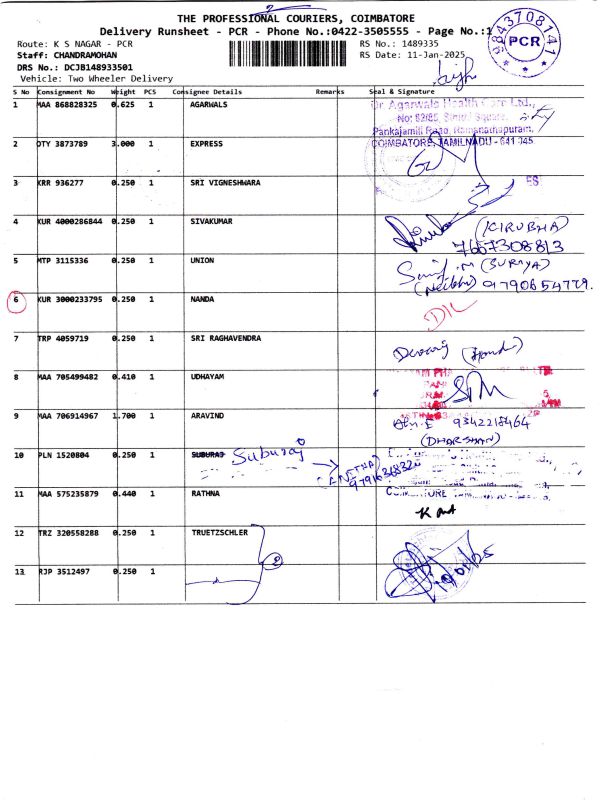 THE PROFESSIONAL COURIERS, COIMBATORE
Delivery Runsheet - PCR - Phone No.:0422-3505555 - Page No.:1
9843708141
PCR
Route: K S NAGAR - PCR
RS No.: 1489335
Staff: CHANDRAMOHAN
RS Date: 11-Jan-2025
DRS No.: DCJB148933501
Vehicle: Two Wheeler Delivery
S No Consignment No Weight PCS Consignee Details Remarks Seal & Signature
1 MAA 868828325 0.625 1 AGARWALS
Dr. Agarwals Health Care Ltd.,
Pankajamill Road, Ramanathapuram,
COIMBATORE, TAMILNADU - 641 045
2 OTY 3873789 3.000 1 EXPRESS
3 KRR 936277 0.250 1 SRI VIGNESHWARA
ES
4 KUR 4000286844 0.250 1 SIVAKUMAR
(KIRUBHA)
7667308813
5 MTP 3115336 0.250 1 UNION
(SURYA)
9790654779.
6 KUR 3000233795 0.250 1 NANDA
DIL
7 TRP 4059719 0.250 1 SRI RAGHAVENDRA
8 MAA 705499482 0.410 1 UDHAYAM
9 MAA 706914967 1.700 1 ARAVIND
9342218464
(DHARSHAN)
10 PLN 1520804 0.250 1 SUBURAJ Suburaj
(ANITHA)
11 MAA 575235879 0.440 1 RATHNA
12 TRZ 320558288 0.250 1 TRUETZSCHLER
2
13 RJP 3512497 0.250 1